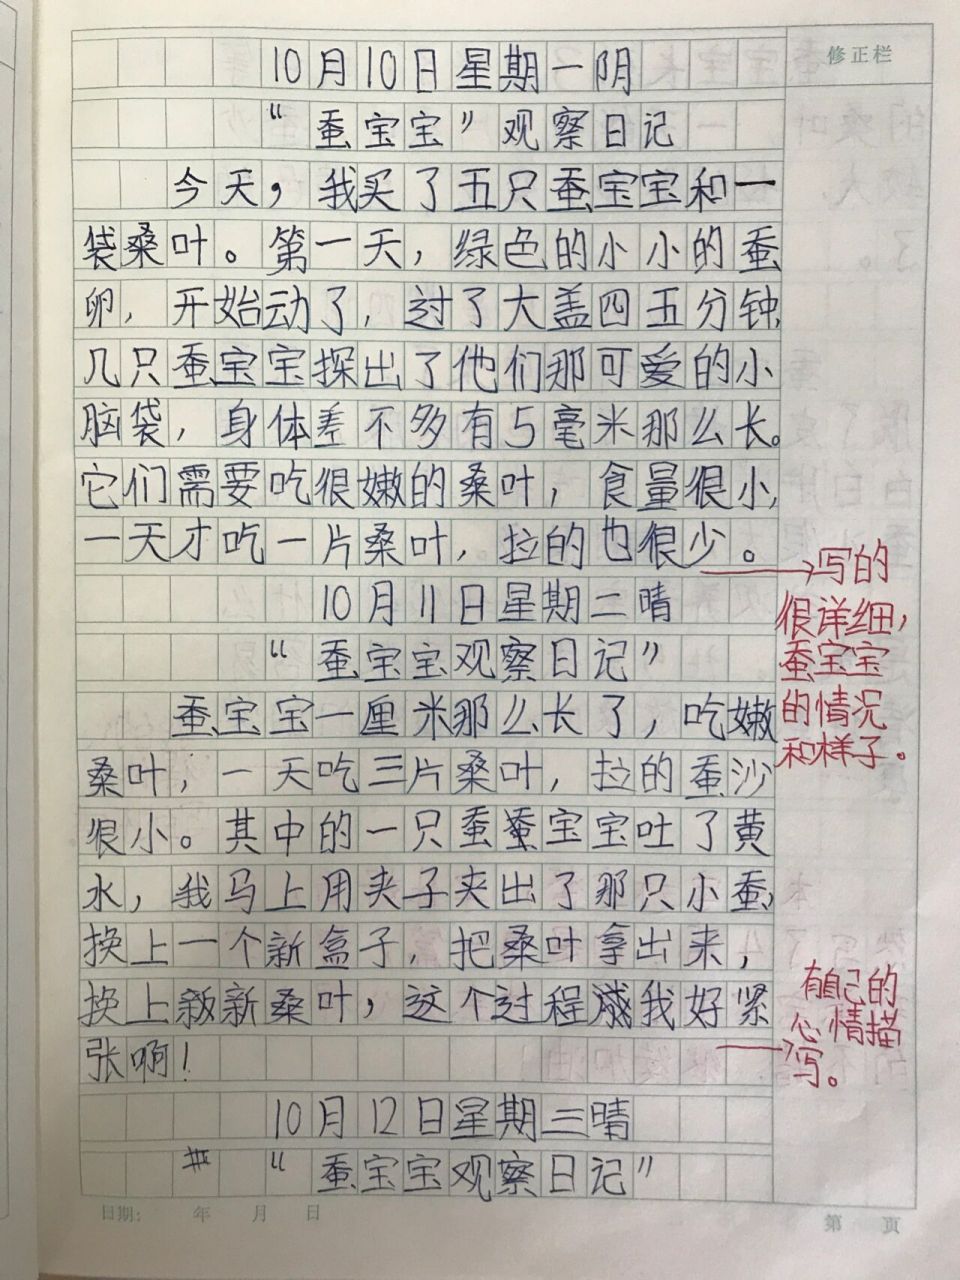 修正栏
10月10日星期一阴
“蚕宝宝”观察日记
今天，我买了五只蚕宝宝和一
袋桑叶。第一天，绿色的小小的蚕
卵，开始动了，过了大盖四五分钟，
几只蚕宝宝探出了他们那可爱的小
脑袋，身体差不多有5毫米那么长。
它们需要吃很嫩的桑叶，食量很小，
一天才吃一片桑叶，拉的也很少。
写的
很详细，
蚕宝宝
的情况
和样子。
10月11日星期二晴
“蚕宝宝观察日记”
蚕宝宝一厘米那么长了，吃嫩
桑叶，一天吃三片桑叶，拉的蚕沙
很小。其中的一只蚕蚕宝宝吐了黄
水，我马上用夹子夹出了那只小蚕，
换上一个新盒子，把桑叶拿出来，
换上新新桑叶，这个过程感我好紧
张啊！
有自己的
心情描
写。
10月12日星期三晴
“蚕宝宝观察日记”
日期： 年 月 日
第 页